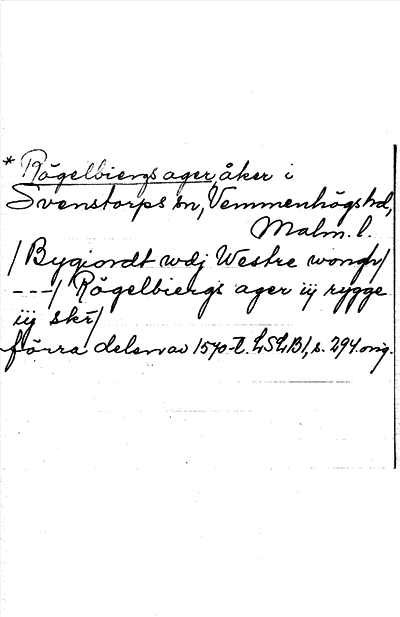 * Rögelbiergs ager, åker i
Svenstorps sn, Vemmenhögs hd,
Malm. l.
/Bygiordt wdj Westre wongh/
---/ Rögelbiergs ager iij rygge
iij skr/
förra delen av 1570-t. LSLB1, s. 294. orig.